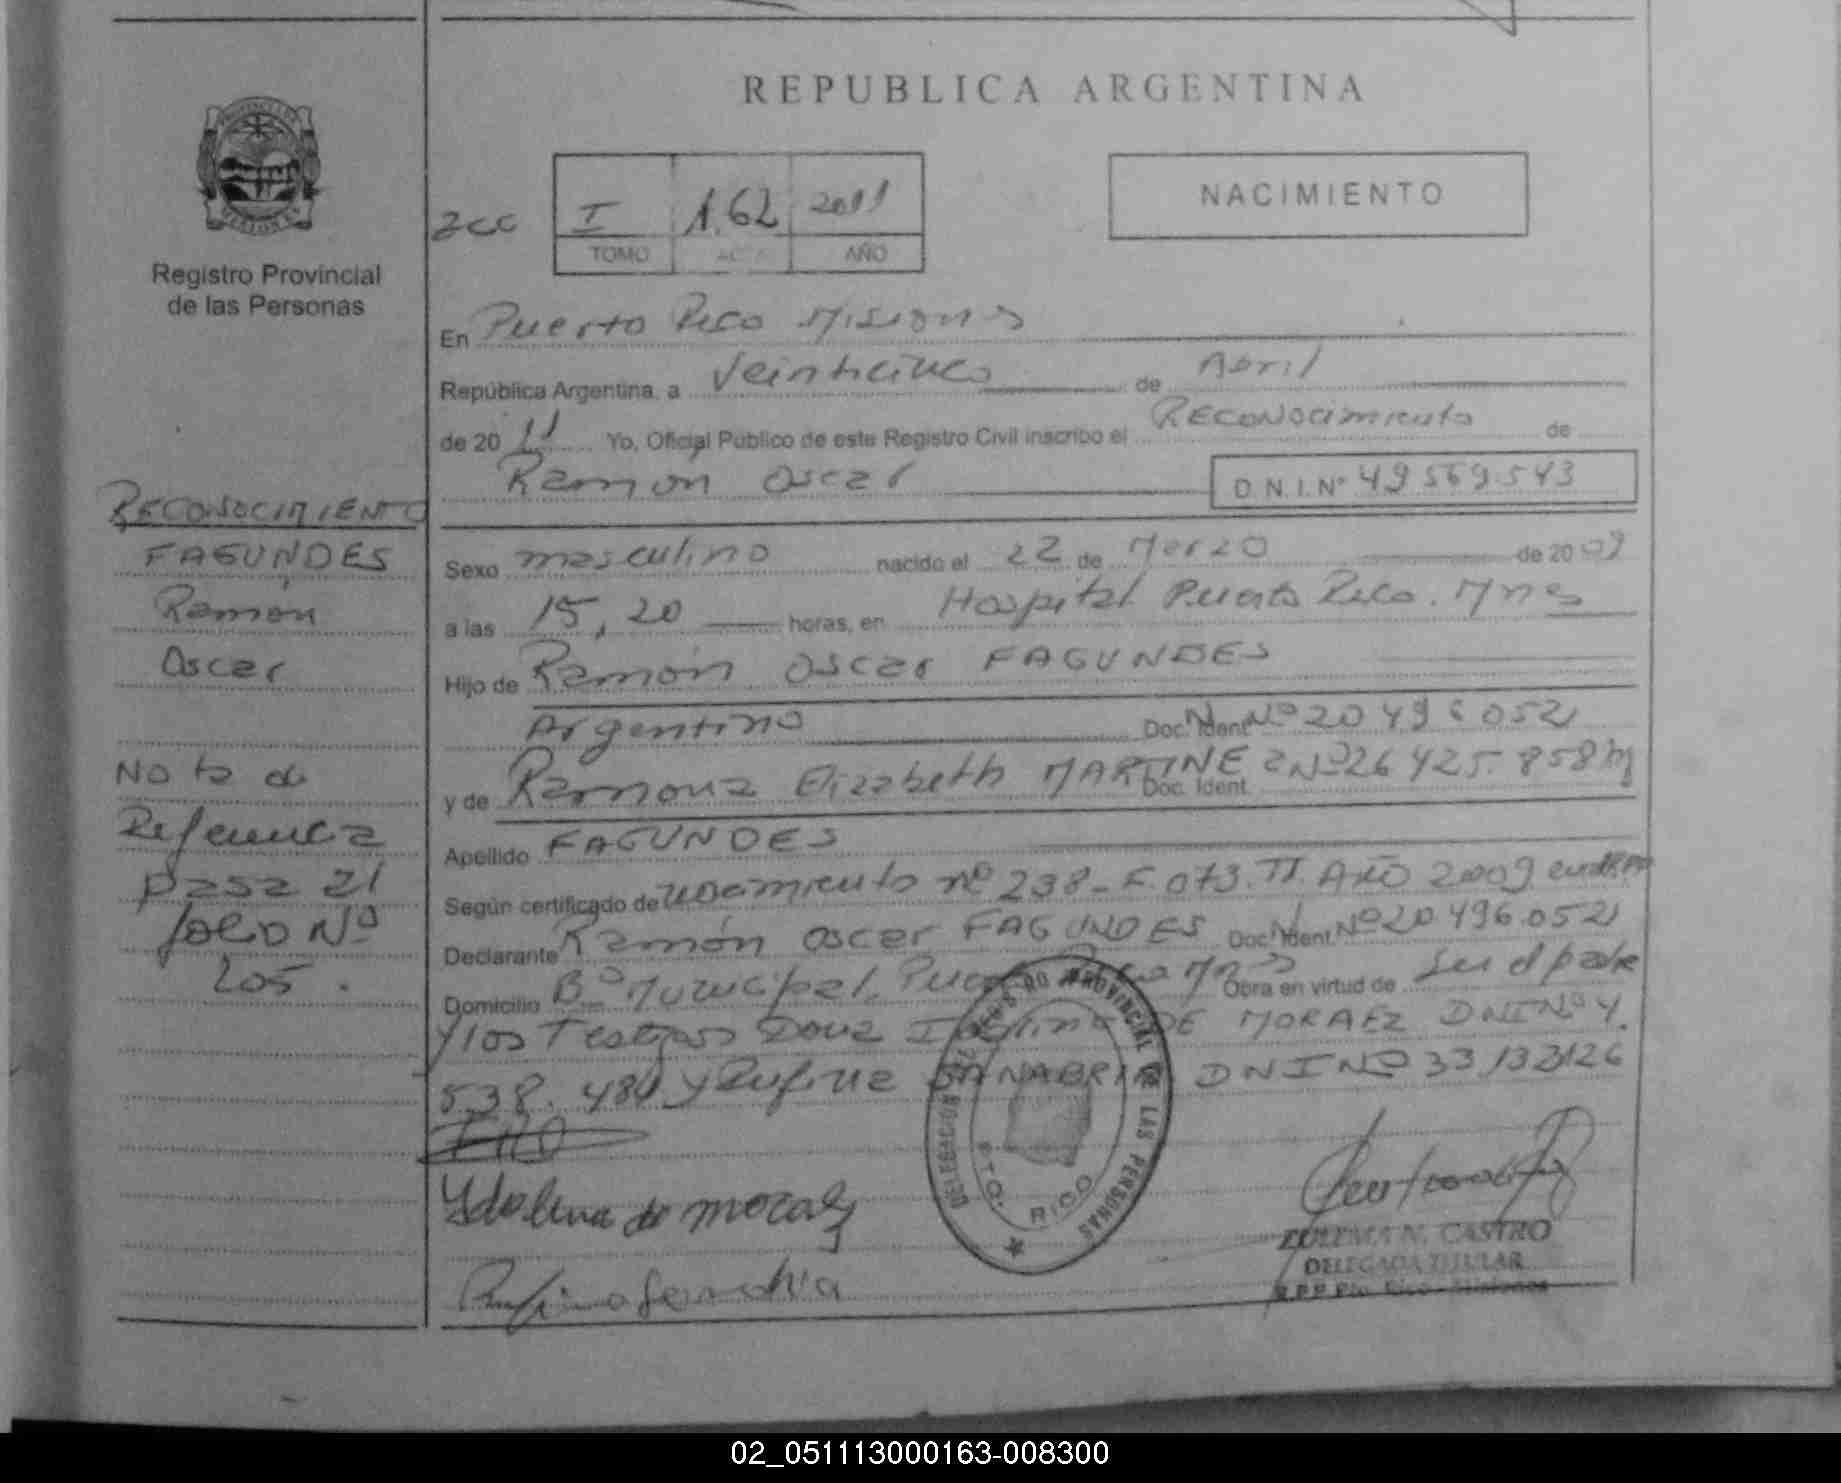 REPUBLICA ARGENTINA
NACIMIENTO
2cc
I 162 2011
TOMO ACTA AÑO
Registro Provincial
de las Personas
En Puerto Rico Misiones
República Argentina, a Veinticinco de Abril
de 2011 Yo, Oficial Público de este Registro Civil inscribo el Reconocimiento de
Ramón Oscar D.N.I.Nº 49569543
RECONOCIMIENTO
FAGUNDES
Ramón
Oscar
Nota de
Referencia
pasa al
folio Nº
205.
Sexo masculino nacido el 22 de Marzo de 2009
a las 15,20 horas, en Hospital Puerto Rico. Mnes
Hijo de Ramón Oscar FAGUNDES
Argentino Doc. Ident. Nº 20496052
y de Ramona Elizabeth MARTINEZ Doc. Ident. Nº 26425.858
Apellido FAGUNDES
Según certificado de nº 238-F.073.II. AÑO 2009
Declarante Ramón Oscar FAGUNDES Doc. Ident. Nº 20496052
Domicilio Bº Municipal. Puerto Rico Mnes Obra en virtud de Ser el padre
y los Testigos Doña DE MORAEZ DNI Nº 4.
538.480 y Rufina SANABRIA DNI Nº 33132126
Ydelina de moraez
Rufina Sanabria
DELEGACION REGISTRO PROVINCIAL DE LAS PERSONAS
PTO. RICO
ZULEMA N. CASTRO
DELEGADA TITULAR
R.P.P. Pto. Rico - Misiones
02_051113000163-008300